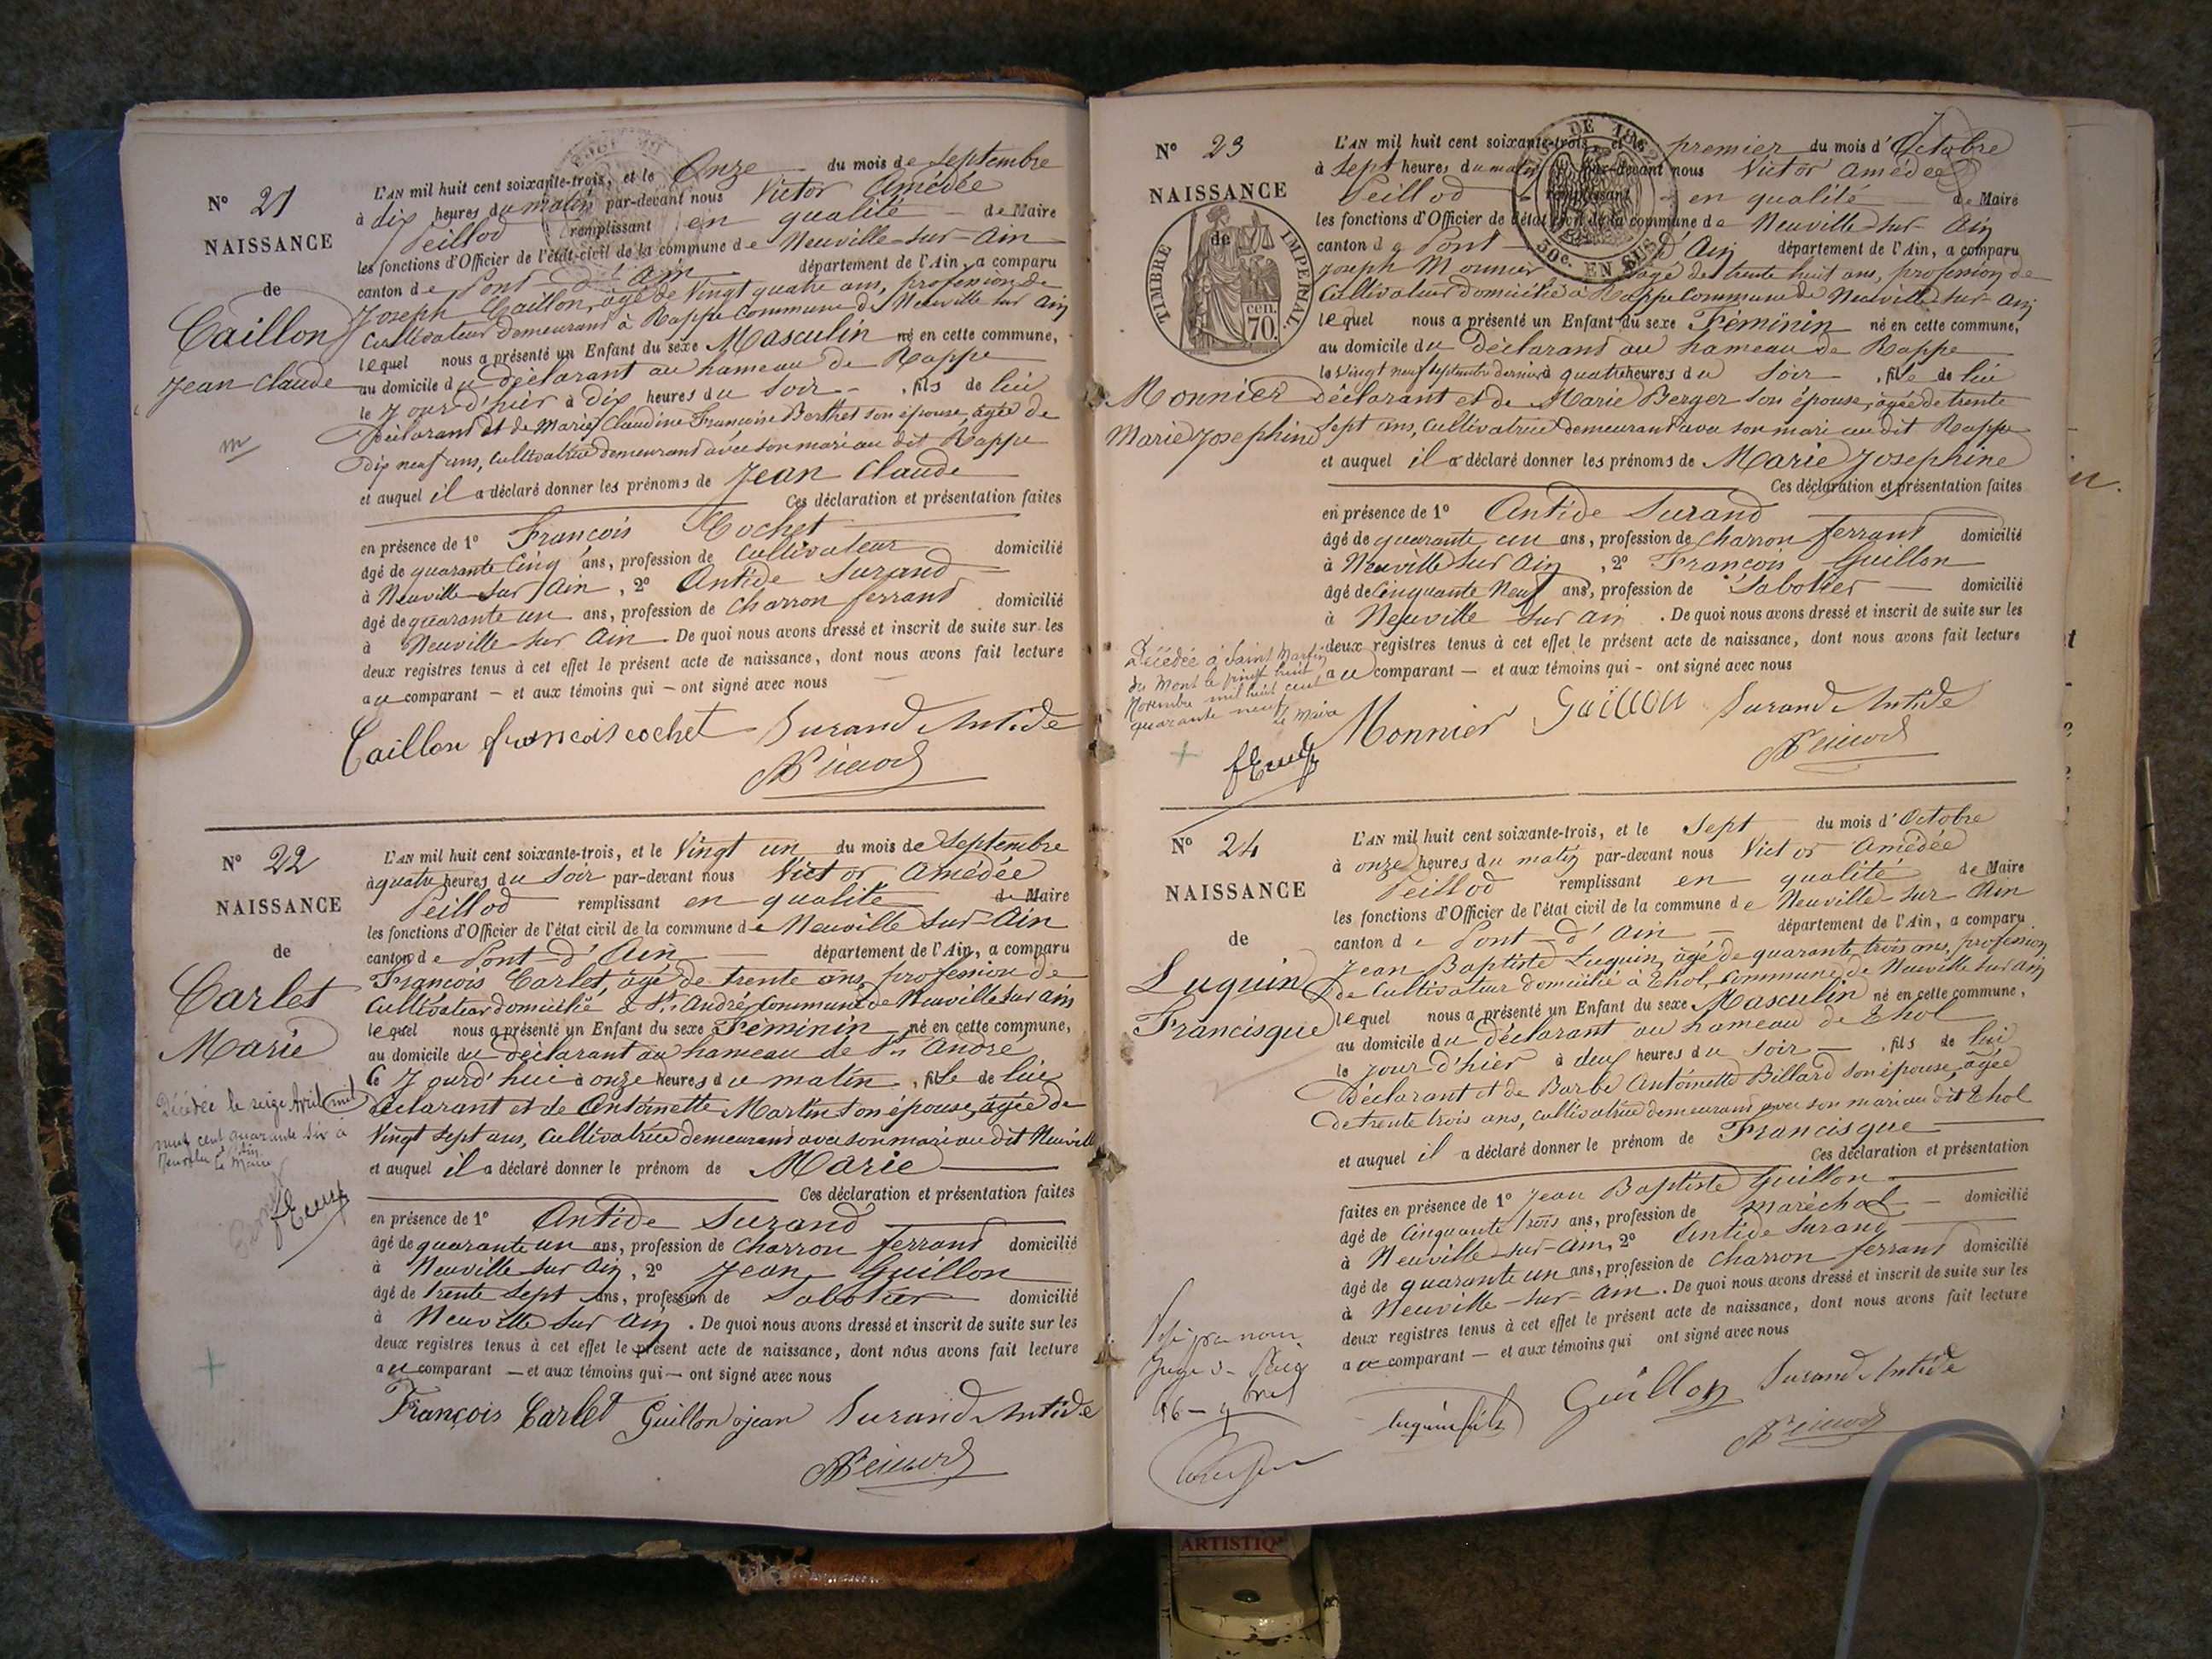 N° 21
NAISSANCE
de
Caillon
Jean Claude
L'AN mil huit cent soixante-trois, et le Onze du mois de Septembre
à dix heures du matin par-devant nous Victor Amédée
Peillod remplissant en qualité de Maire
les fonctions d'Officier de l'état-civil de la commune de Neuville-sur-Ain
canton de Pont-d'Ain département de l'Ain, a comparu
Joseph Caillon, âgé de Vingt quatre ans, profession de
Cultivateur demeurant à Rappe Commune de Neuville sur Ain
lequel nous a présenté un Enfant du sexe Masculin né en cette commune,
au domicile du déclarant au hameau de Rappe
le Jour d'hier à dix heures du Soir, fils de lui
déclarant et de Marie Claudine Françoise Berthet son épouse, agée de
dix neuf ans, cultivatrice demeurant avec son mari au dit Rappe
et auquel il a déclaré donner les prénoms de Jean Claude
Ces déclaration et présentation faites
en présence de 1° François Cochet
âgé de quarante Cinq ans, profession de Cultivateur domicilié
à Neuville sur Ain, 2° Antide Surand
âgé de quarante un ans, profession de Charron ferrant domicilié
à Neuville sur Ain. De quoi nous avons dressé et inscrit de suite sur les
deux registres tenus à cet effet le présent acte de naissance, dont nous avons fait lecture
au comparant — et aux témoins qui — ont signé avec nous
Caillon francois cochet Surand Antide
N° 22
NAISSANCE
de
Carlet
Marie
Décédée le seize Avril mil
neuf cent quarante six à
Neuville s/ Ain
Le Maire
L'AN mil huit cent soixante-trois, et le Vingt un du mois de Septembre
à quatre heures du Soir par-devant nous Victor Amédée
Peillod remplissant en qualité de Maire
les fonctions d'Officier de l'état civil de la commune de Neuville sur-Ain
canton de Pont-d'Ain département de l'Ain, a comparu
François Carlet, âgé de trente ans, profession de
Cultivateur domicilié à St. André Commune de Neuville sur Ain
lequel nous a présenté un Enfant du sexe Féminin né en cette commune,
au domicile du déclarant au hameau de St. André
le Jourd'hui à onze heures du matin, fille de lui
déclarant et de Antoinette Martin son épouse, agée de
Vingt sept ans, Cultivatrice demeurant avec son mari au dit Neuville
et auquel il a déclaré donner le prénom de Marie
Ces déclaration et présentation faites
en présence de 1° Antide Surand
âgé de quarante un ans, profession de Charron ferrant domicilié
à Neuville sur Ain, 2° Jean Guillon
âgé de trente Sept ans, profession de Sabotier domicilié
à Neuville sur Ain. De quoi nous avons dressé et inscrit de suite sur les
deux registres tenus à cet effet le présent acte de naissance, dont nous avons fait lecture
au comparant — et aux témoins qui — ont signé avec nous
François Carlet Guillon jean Surand Antide
N° 23
NAISSANCE
de
TIMBRE IMPERIAL
CEN.
70.
Monnier
Marie Josephine
Décédée à Saint Martin
du Mont le vingt huit
Novembre mil huit cent
quarante neuf
Le Maire
DE 1862
50c. EN SUS
L'AN mil huit cent soixante-trois, et le premier du mois d'Octobre
à Sept heures du matin par-devant nous Victor Amédée
Peillod remplissant en qualité de Maire
les fonctions d'Officier de l'état civil de la commune de Neuville sur Ain
canton de Pont d'Ain département de l'Ain, a comparu
Joseph Monnier âgé de trente huit ans, profession de
Cultivateur domicilié à Rappe Commune de Neuville sur Ain
lequel nous a présenté un Enfant du sexe Féminin né en cette commune,
au domicile du déclarant au hameau de Rappe
le Vingt neuf Septembre dernier à quatre heures du Soir, fille de lui
déclarant et de Marie Berger son épouse, agée de trente
sept ans, Cultivatrice demeurant avec son mari au dit Rappe
et auquel il a déclaré donner les prénoms de Marie Josephine
Ces déclaration et présentation faites
en présence de 1° Antide Surand
âgé de quarante un ans, profession de Charron ferrant domicilié
à Neuville sur Ain, 2° François Guillon
âgé de Cinquante Neuf ans, profession de Sabotier domicilié
à Neuville sur Ain. De quoi nous avons dressé et inscrit de suite sur les
deux registres tenus à cet effet le présent acte de naissance, dont nous avons fait lecture
au comparant — et aux témoins qui - ont signé avec nous
Monnier Guillon Surand Antide
N° 24
NAISSANCE
de
Luguin
Francisque
L'AN mil huit cent soixante-trois, et le Sept du mois d'Octobre
à onze heures du matin par-devant nous Victor Amédée
Peillod remplissant en qualité de Maire
les fonctions d'Officier de l'état civil de la commune de Neuville-sur-Ain
canton de Pont-d'Ain département de l'Ain, a comparu
Jean Baptiste Luguin, âgé de quarante trois ans, profession
de Cultivateur domicilié à Thol, Commune de Neuville sur Ain
lequel nous a présenté un Enfant du sexe Masculin né en cette commune,
au domicile du déclarant au hameau de Thol
le Jour d'hier à deux heures du Soir, fils de lui
Déclarant et de Barbe Antoinette Billard son épouse, âgée
de trente trois ans, cultivatrice demeurant avec son mari au dit Thol
et auquel il a déclaré donner le prénom de Francisque
Ces déclaration et présentation
faites en présence de 1° Jean Baptiste Guillon
âgé de Cinquante trois ans, profession de Maréchal domicilié
à Neuville-sur-Ain, 2° Antide Surand
âgé de quarante un ans, profession de Charron ferrant domicilié
à Neuville-sur-Ain. De quoi nous avons dressé et inscrit de suite sur les
deux registres tenus à cet effet le présent acte de naissance, dont nous avons fait lecture
au comparant — et aux témoins qui ont signé avec nous
Guillon Surand Antide
ARTISTIQ